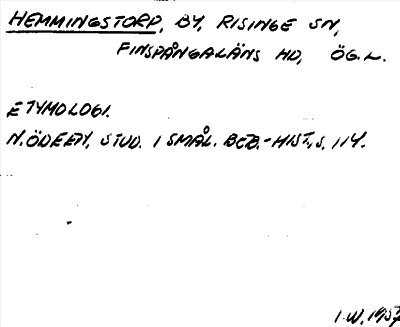 HEMMINGSTORP, BY, RISINGE SN,
FINSPÅNGALÄNS HD, ÖG.L.
ETYMOLOGI.
N. ÖDEEN, STUD. I SMÅL. BEB.-HIST., S. 114.
I.W. 1957